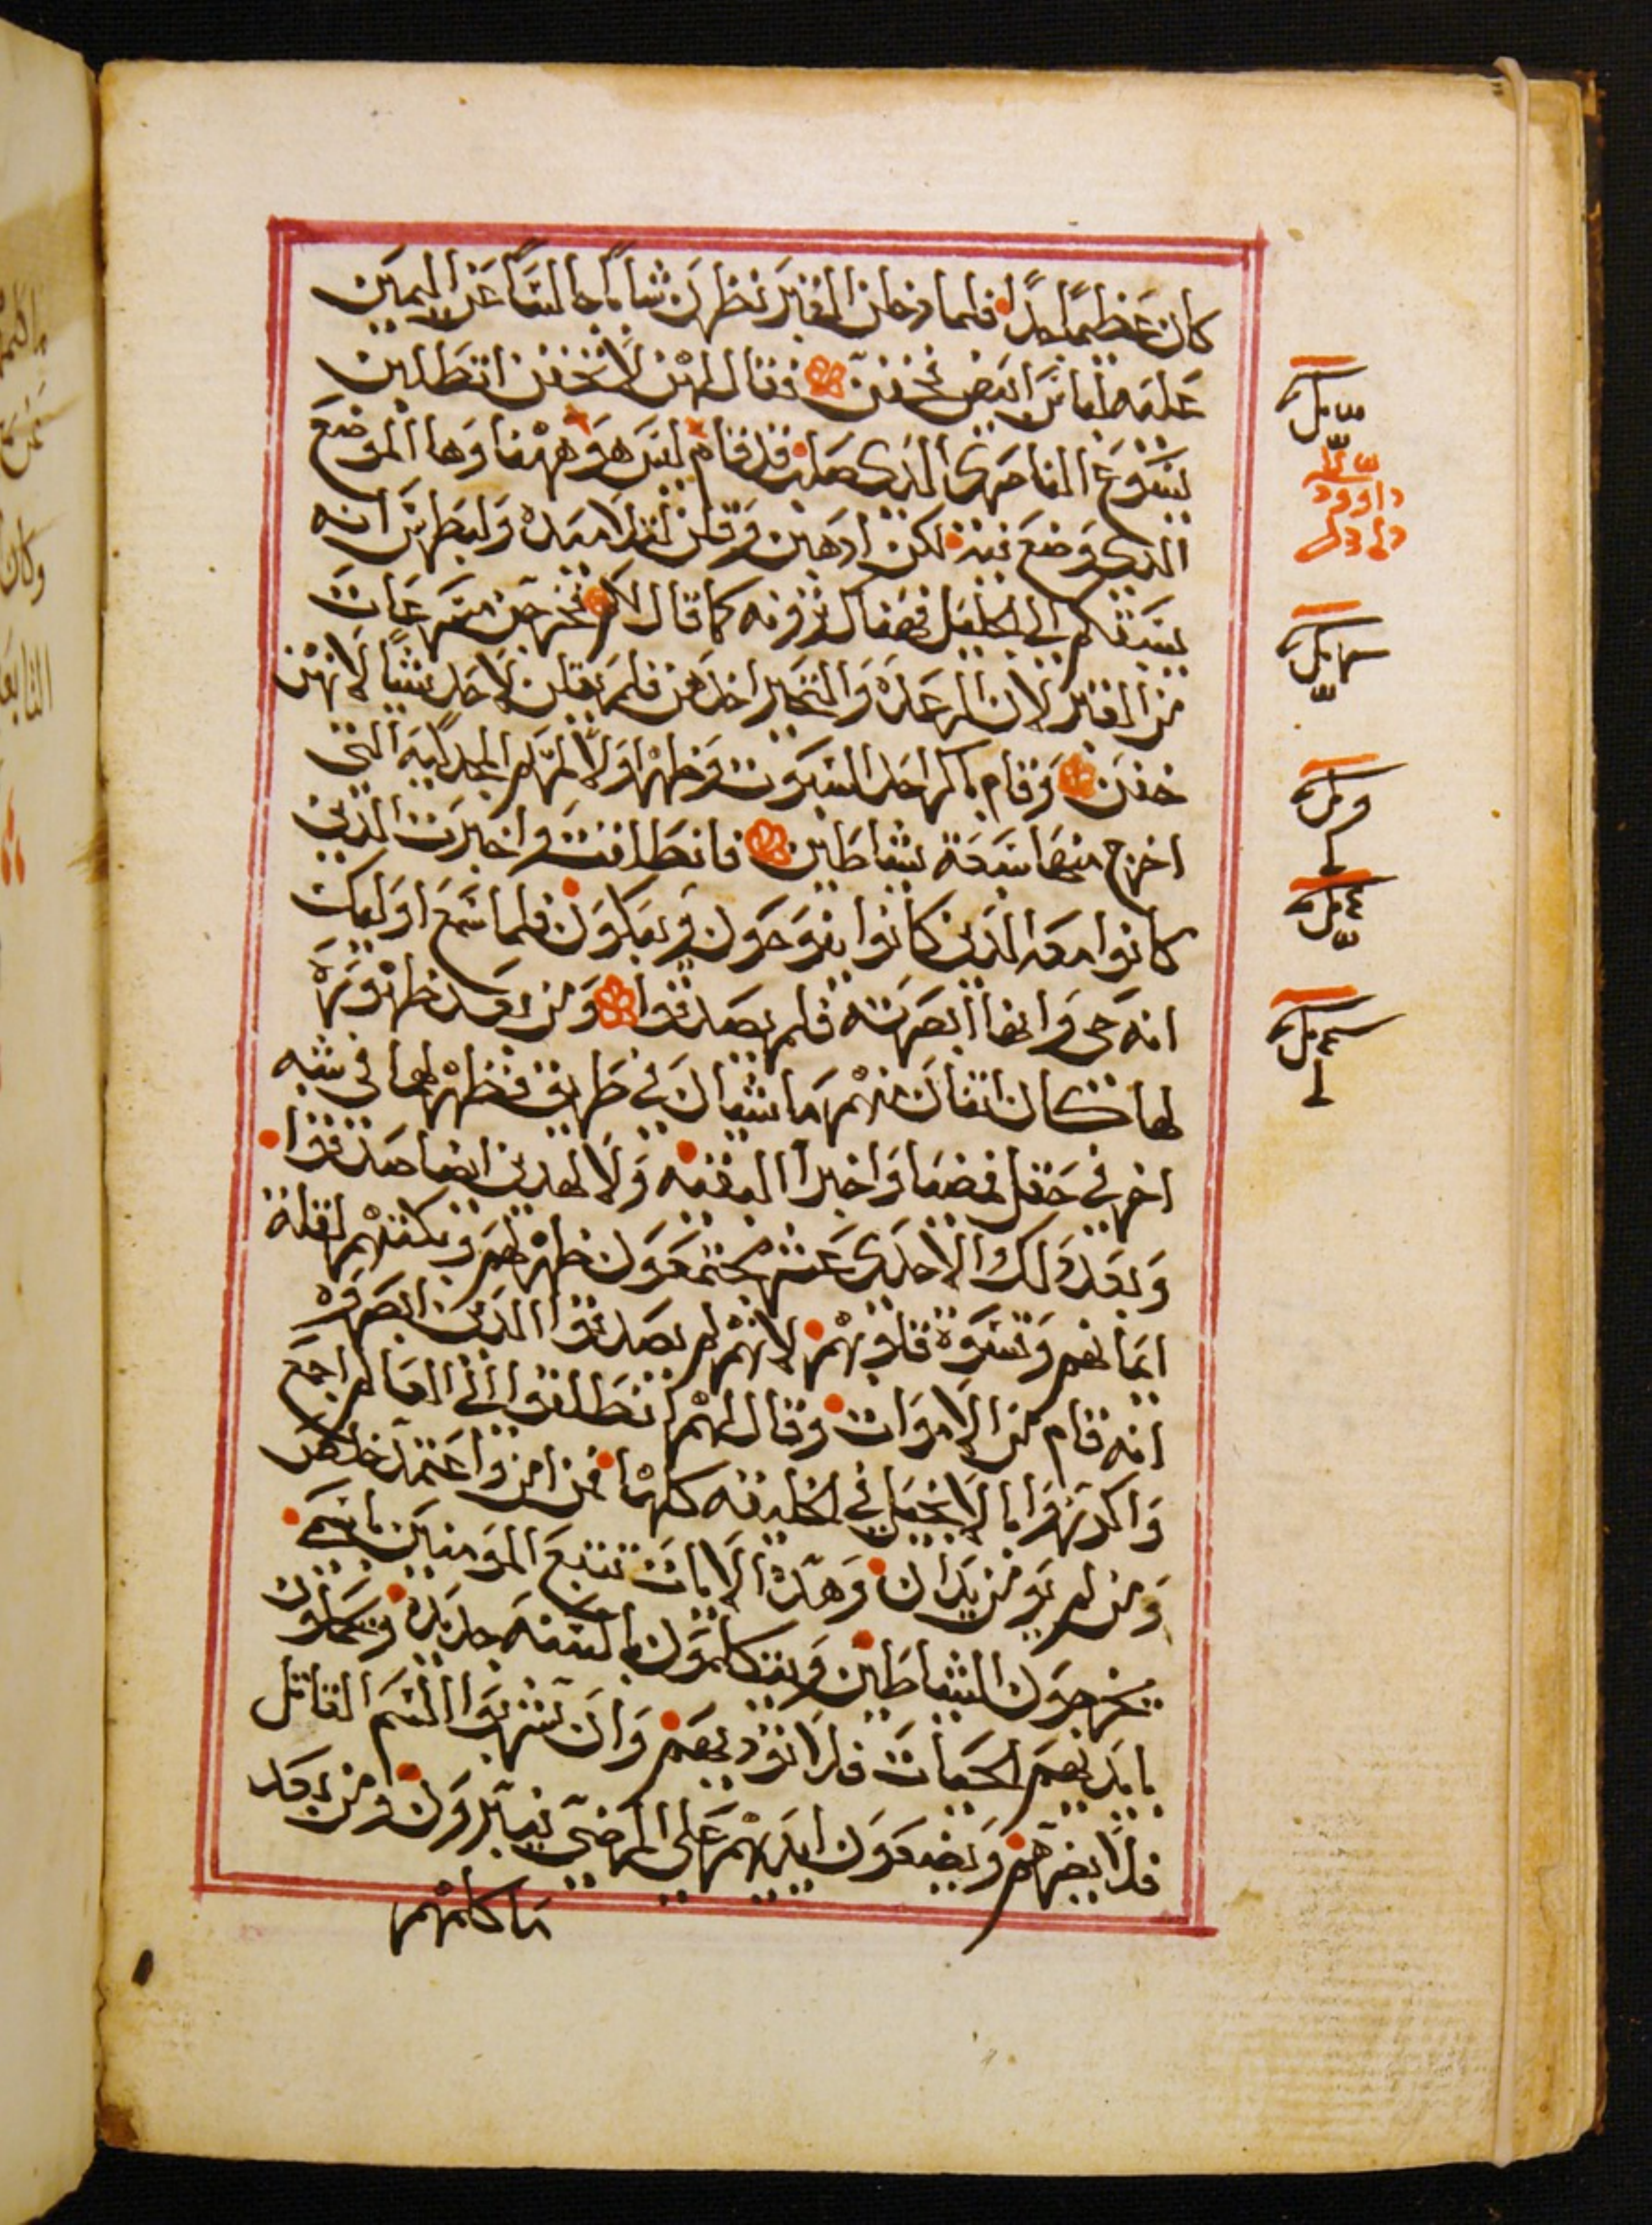 كان عظيمًا جدًا فلما دخلن القبر نظرن شابًا جالسًا عن اليمين
عليه لباس ابيض فخفن فقال لهن لا تخفن اتطلبن
يسوع الناصري الذي صلب قد قام ليس هو ههنا وها الموضع
الذي وضع فيه لكن ادهبن وقلن لتلاميده ولبطرس انه
يسبقكم الى الجليل فهناك ترونه كما قال لكم فخرجن مسرعات
من القبر لان الرعدة والتحير اخدهن فلم يقلن لاحد شيًا لانهن
خفن وقام باكر احد السبوت وظهر اولًا لمريم المجدلية التي
اخرج منها سبعة شياطين فانطلقت واخبرت الدين
كانوا معه الدين كانوا ينوحون ويبكون فلما سمع اوليك
انه حي وانها ابصرته فلم يصدقوا ومن بعد ظهوره
لها كان اتنان منهم ماشيان في طريق فظهر لهما في شبه
اخر في حقل فمضيا واخبرا البقيه ولا لهدين ايضا صدقوا
وبعد دلك الاحدى عشر مجتمعون ظهر لهم وبكتهم لقلة
ايمانهم وقسوة قلوبهم لانهم لم يصدقوا الدين ابصروه
انه قام من الاموات وقال لهم انطلقوا الى العالم اجمع
واكرزوا بالانجيل في الخليقه كلها فمن امن واعتمد خلص
ومن لم يومن يدان وهده الايات تتبع المومنين باسمي
يخرجون الشياطين ويتكلمون بالسنه جديده ويحملون
بايديهم الحيات فلا توديهم وان شربوا السم القاتل
فلا يضرهم ويضعون ايديهم على المرضى فيبرون ومن بعد
ما كلمهم